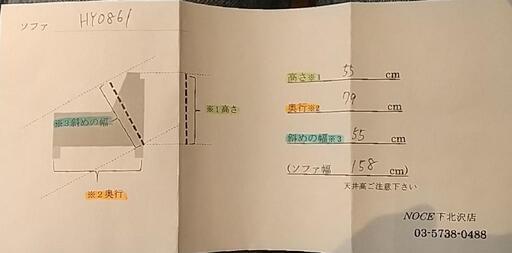 ソファ HY0861
※3斜めの幅
※1高さ
※2奥行
高さ※1 55 cm
奥行※2 79 cm
斜めの幅※3 55 cm
(ソファ幅 158 cm)
天井高ご注意下さい
NOCE下北沢店
03-5738-0488